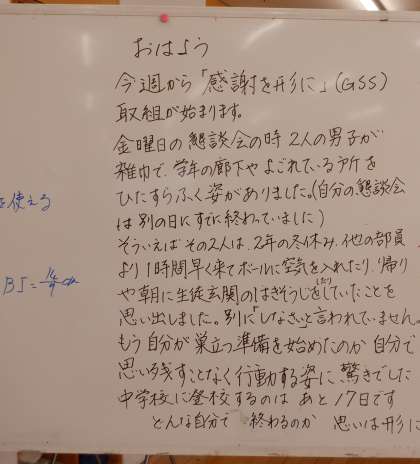 おはよう
今週から「感謝を形に」(GSS)
取組が始まります。
金曜日の懇談会の時 2人の男子が
雑巾で、学年の廊下やよごれている所を
ひたすらふく姿がありました。(自分の懇談会
は別の日にすでに終わっていました)
そういえばその2人は、2年の冬休み、他の部員
より1時間早く来てボールに空気を入れたり、帰り
や朝に生徒玄関のはきそうじをしたりしていたことを
思い出しました。別に「しなさい」と言われていません。
もう自分が巣立つ準備を始めたのか 自分で
思い残すことなく行動する姿に、驚きでした
中学校に登校するのは あと17日です
どんな自分で 終わるのか 思いは形に
を使える
BI=